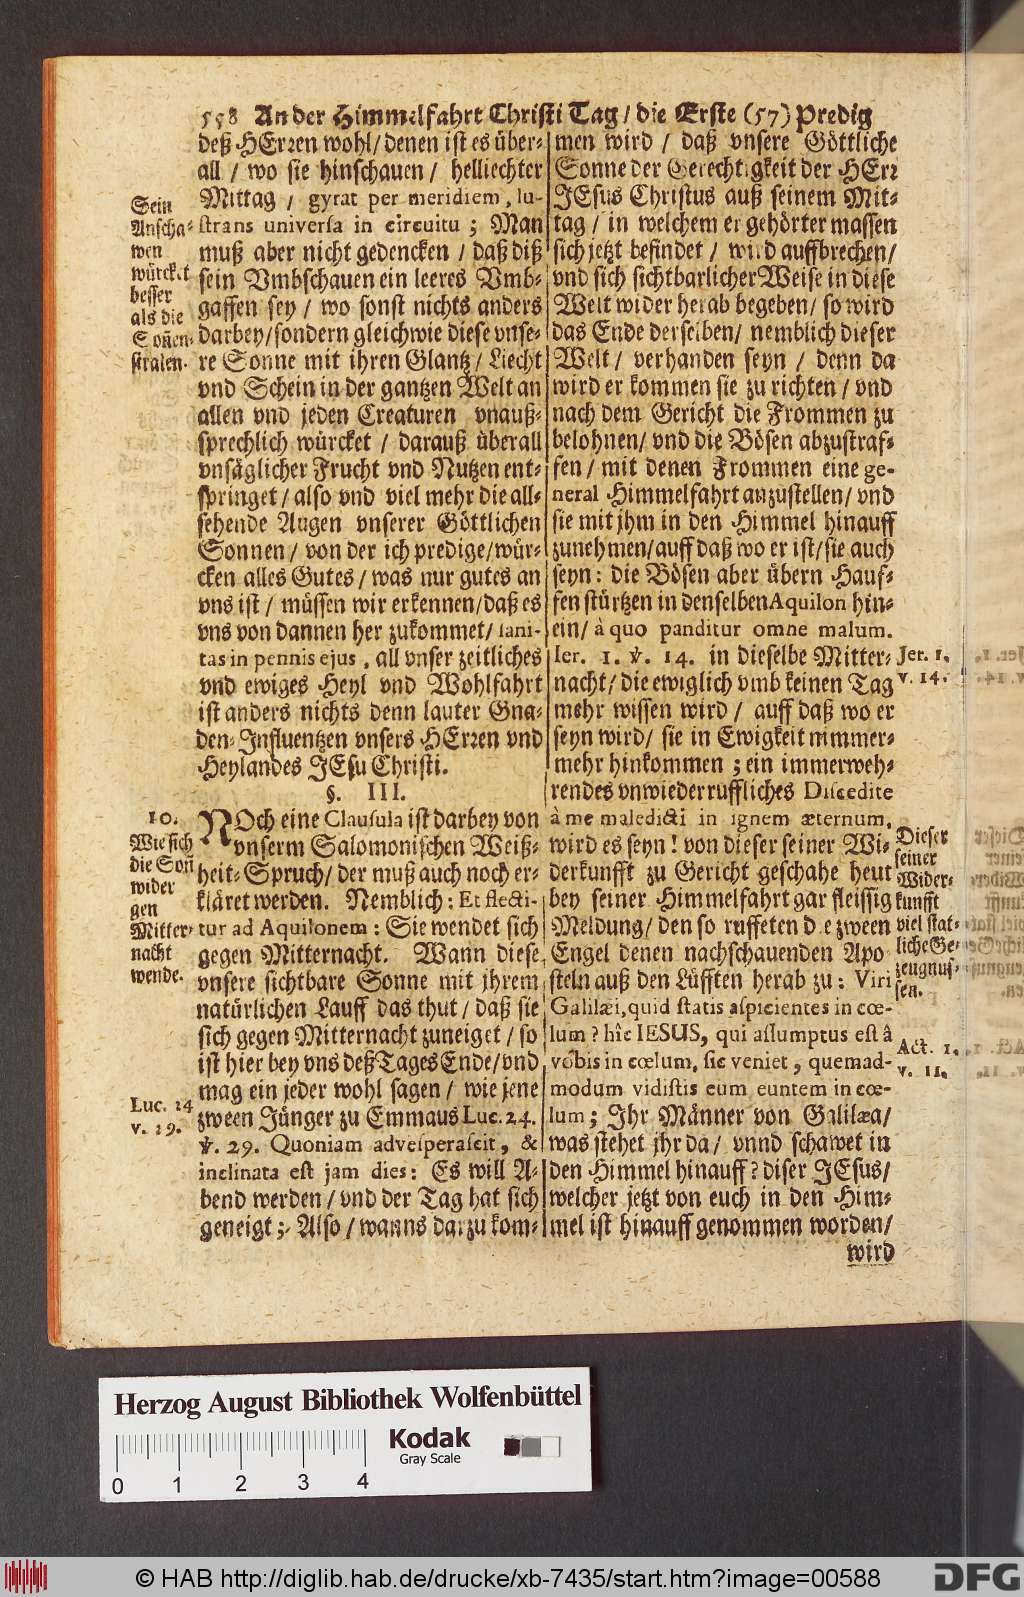 558 An der Himmelfahrt Christi Tag / die Erste (57) Predig
deß HErren wohl / denen ist es über-
all / wo sie hinschauen / helliechter
Mittag / gyrat per meridiem, lu-
strans universa in circuitu ; Man
muß aber nicht gedencken / daß diß
sein Vmbschauen ein leeres Vmb-
gaffen sey / wo sonst nichts anders
darbey / sondern gleichwie diese vnse-
re Sonne mit ihren Glantz / Liecht
vnd Schein in der gantzen Welt an
allen vnd jeden Creaturen vnauß-
sprechlich würcket / darauß überall
vnsäglicher Frucht vnd Nutzen ent-
springet / also vnd viel mehr die all-
sehende Augen vnserer Göttlichen
Sonnen / von der ich predige / wür-
cken alles Gutes / was nur gutes an
vns ist / müssen wir erkennen / daß es
vns von dannen her zukommet / sani-
tas in pennis ejus, all vnser zeitliches
vnd ewiges Heyl vnd Wohlfahrt
ist anders nichts denn lauter Gna-
den-Influentzen vnsers HErren vnd
Heylandes JEsu Christi.
§. III.
NOch eine Clausula ist darbey von
vnserm Salomonischen Weiß-
heit-Spruch / der muß auch noch er-
kläret werden. Nemblich: Et flecti-
tur ad Aquilonem: Sie wendet sich
gegen Mitternacht. Wann diese
vnsere sichtbare Sonne mit jhrem
natürlichen Lauff das thut / daß sie
sich gegen Mitternacht zuneiget / so
ist hier bey vns deß Tages Ende / vnd
mag ein jeder wohl sagen / wie jene
zween Jünger zu Emmaus Luc. 24.
℣. 29. Quoniam advesperascit, &
inclinata est jam dies: Es will A-
bend werden / vnd der Tag hat sich
geneigt ; Also / wanns darzu kom-
Sein
Anscha-
wen
würcket
besser
als die
Soñen-
stralen.
10.
Wie sich
die Soñ
wider
gen
Mitter-
nacht
wende.
Luc. 24
v. 29.
men wird / daß vnsere Göttliche
Sonne der Gerechtigkeit der HErr
JEsus Christus auß seinem Mit-
tag / in welchem er gehörter massen
sich jetzt befindet / wird auffbrechen /
vnd sich sichtbarlicher Weise in diese
Welt wider herab begeben / so wird
das Ende derselben / nemblich dieser
Welt / verhanden seyn / denn da
wird er kommen sie zu richten / vnd
nach dem Gericht die Frommen zu
belohnen / vnd die Bösen abzustraf-
fen / mit denen Frommen eine ge-
neral Himmelfahrt anzustellen / vnd
sie mit jhm in den Himmel hinauff
zunehmen / auff daß wo er ist / sie auch
seyn: die Bösen aber übern Hauf-
fen stürtzen in denselben Aquilon hin-
ein / à quo panditur omne malum.
Ier. 1. ℣. 14. in dieselbe Mitter-
nacht / die ewiglich vmb keinen Tag
mehr wissen wird / auff daß wo er
seyn wird / sie in Ewigkeit nimmer-
mehr hinkommen ; ein immerweh-
rendes vnwiederruffliches Discedite
à me maledicti in ignem æternum,
wird es seyn ! von dieser seiner Wi-
derkunfft zu Gericht geschahe heut
bey seiner Himmelfahrt gar fleissig
Meldung / den so ruffeten die zween
Engel denen nachschauenden Apo
steln auß den Lüfften herab zu: Viri
Galilæi, quid statis aspicientes in cœ-
lum ? hîc IESUS, qui assumptus est â
vobis in cœlum, sic veniet, quemad-
modum vidistis eum euntem in cœ-
lum ; Ihr Männer von Galilæa /
was stehet jhr da / vnnd schawet in
den Himmel hinauff ? diser JEsus /
welcher jetzt von euch in den Him-
mel ist hinauff genommen worden /
wird
Jer. 1.
v. 14.
Dieser
seiner
Wider-
kunfft
viel stat-
liche Ge-
zeugnus-
sen.
Act. 1.
v. 11.
Herzog August Bibliothek Wolfenbüttel
Kodak
Gray Scale
0 1 2 3 4
© HAB http://diglib.hab.de/drucke/xb-7435/start.htm?image=00588
DFG